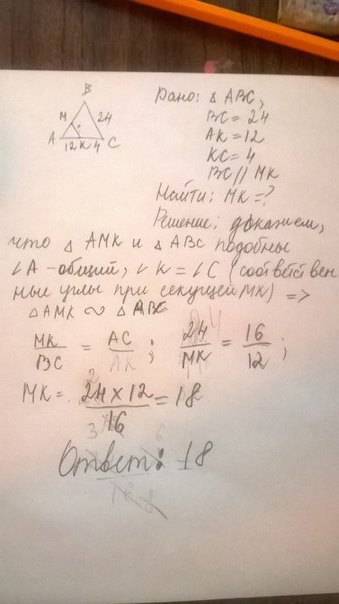 B
M
24
A
12
K
4
C
Дано: △ ABC,
BC = 24
AK = 12
KC = 4
BC // MK
Найти: MK = ?
Решение: докажем,
что △ AMK и △ ABC подобны
∠A - общий, ∠K = ∠C (соответствен
ные углы при секущей MK) =>
△ AMK ∾ △ ABC
MK/BC = AC/AK ; 24/MK = 16/12 ;
MK = 24 × 12/16 = 18
Ответ: 18